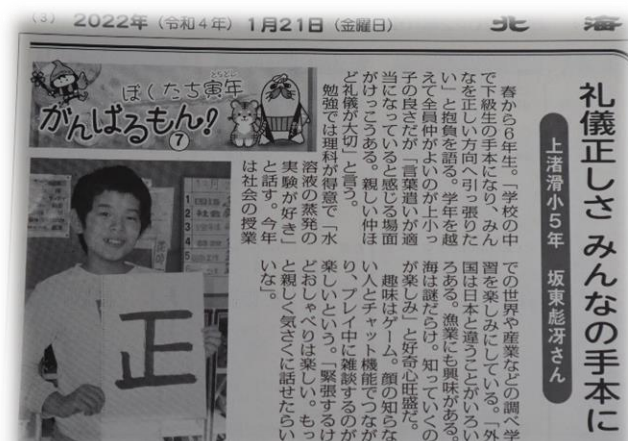 (3) 2022年 (令和4年) 1月21日 (金曜日)
北 海
礼儀正しさ みんなの手本に
上渚滑小5年 坂東彪冴さん
ぼくたち寅年
とらどし
がんばるもん!
⑦
春から6年生。「学校の中
で下級生の手本になり、みん
なを正しい方向へ引っ張りた
い」と抱負を語る。学年を越
えて全員仲がよいのが上小っ
子の良さだが「言葉遣いが適
当になっていると感じる場面
がけっこうある。親しい仲ほ
ど礼儀が大切」と言う。
勉強では理科が得意で「水
溶液の蒸発の
実験が好き」
と話す。今年
は社会の授業
での世界や産業などの調べ学
習を楽しみにしている。「外
国は日本と違うことがいろい
ろある。漁業にも興味がある。
海は謎だらけ。知っていくの
が楽しみ」と好奇心旺盛だ。
趣味はゲーム。顔の知らな
い人とチャット機能でつなが
り、プレイ中に雑談するのが
楽しいという。「緊張するけ
どおしゃべりは楽しい。もっ
と親しく気さくに話せたらい
いな」。
正